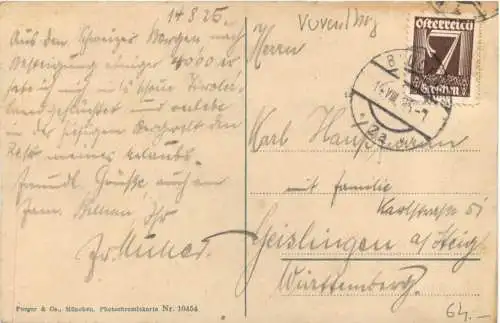 14.8.25.
Aus den Schweizer Bergen nach
Besteigung einiger 4000er
habe ich mich ins schöne Tiroler
land geflüchtet und
in der hiesigen Bergwelt den
Rest meines Urlaubs.
Freundl. Grüße auch an
Fam. Ihr
Vorarlbg
Herrn
Karl Hauptmann
mit Familie
Karlstrasse 51
Geislingen a/Steig
Württemberg.
64.-
österreich
7
Groschen
Purger & Co., München, Photochromiekarte Nr. 10454